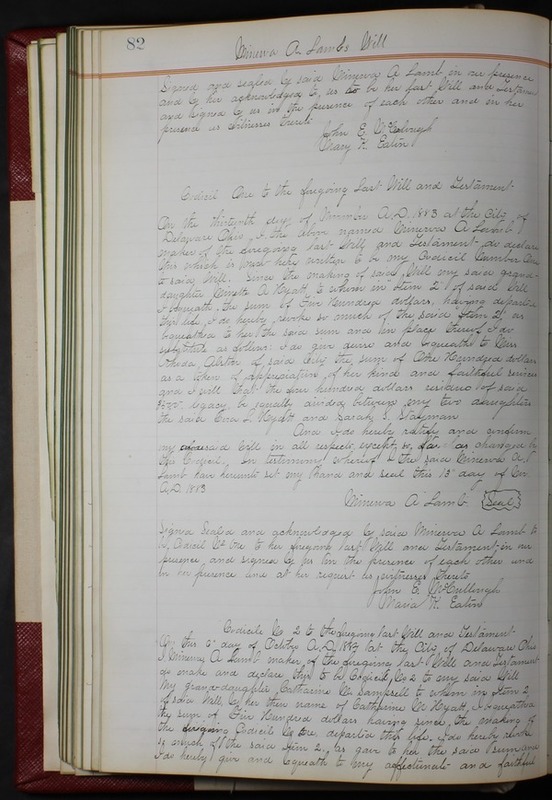 82
Minerva A Lambs Will
Signed and sealed by said Minerva A Lamb in our presence
and by her acknowledged to us to be her last Will and Testament
and signed by us in the presence of each other and in her
presence as witnesses thereto
John E. McCullough
Mary K. Eaton
Codicil One to the foregoing Last Will and Testament
On the thirteenth day of A.D. 1883 at the City of
Delaware Ohio, I the above named Minerva A Lamb
maker of the foregoing last Will and Testament do declare
this which is here written to be my Codicil Number One
to said Will. Since the making of said Will my said grand-
daughter A Hyatt to whom in Item 2d of said Will
I bequeath the sum of Five Hundred dollars, having departed
this life, I do hereby revoke so much of the said Item 2d as
bequeathed to her the said sum and in place thereof I do
substitute as follows: I do give devise and bequeath to
of said City the sum of One Hundred dollars
as a token of appreciation of her kind and faithful services
and I will that the four hundred dollars residue of said
$500. legacy be equally divided between my two daughters
the said Eva L. Hyatt and Sarah S.
And I do hereby ratify and confirm
my said Will in all respects except so far as changed by
this Codicil. In testimony whereof I the said Minerva A
Lamb have hereunto set my hand and seal this 13" day of
A.D. 1883
Minerva A Lamb Seal
Signed Sealed and acknowledged by said Minerva A Lamb to
be Codicil No One to her foregoing last Will and Testament in our
presence, and signed by us in the presence of each other and
in her presence and at her request as witnesses thereto
John E. McCullough
Maria K. Eaton
Codicil No 2 to the foregoing last Will and Testament
On this 6" day of October A.D. 1887 at the City of Delaware Ohio
I Minerva A Lamb maker of the foregoing last Will and Testament
do make and declare this to be Codicil No 2 to my said Will
My grand-daughter Catharine to whom in Item 2
of said Will, by her then name of Catharine Hyatt, I bequeathed
the sum of Five Hundred dollars having since the making of
the foregoing Codicil No One, departed this life. I do hereby revoke
so much of the said Item 2, as gave to her the said sum and
I do hereby give and bequeath to my affectionate and faithful